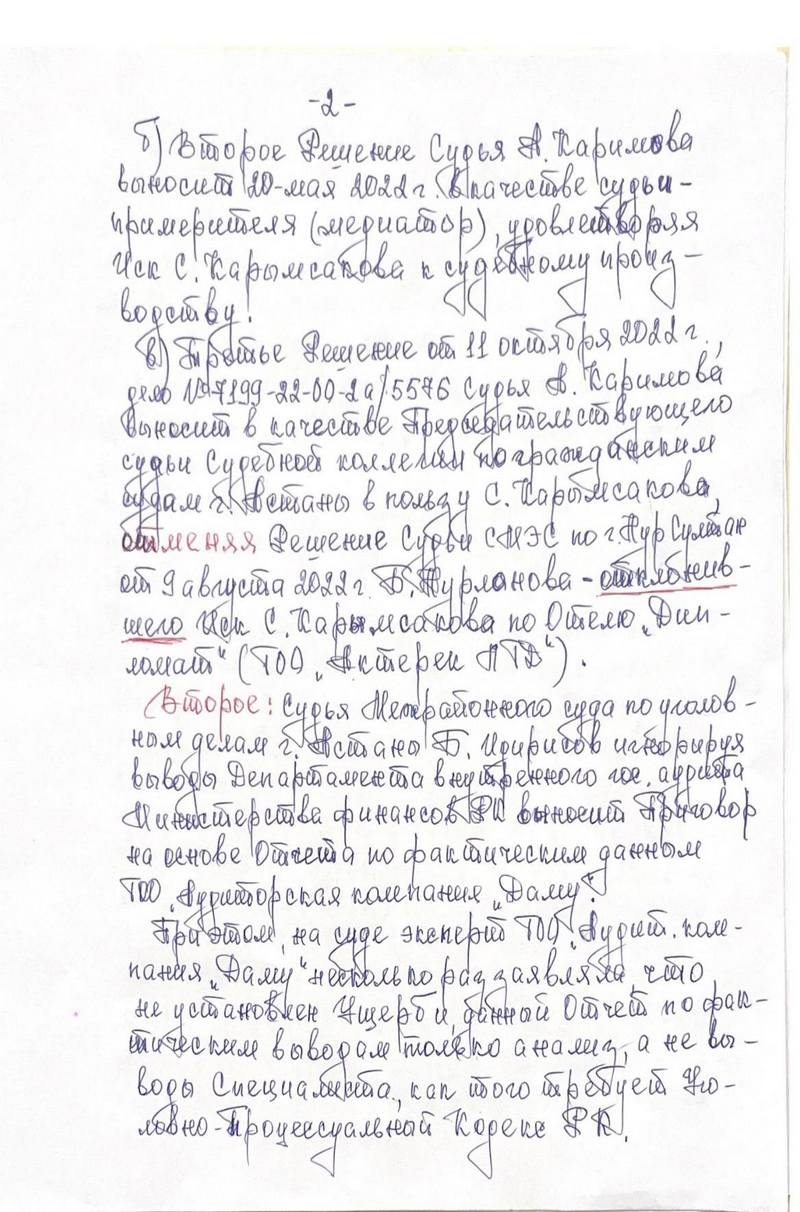 -2-
б) Второе Решение Судья А. Каримова
выносит 20-мая 2022 г. В качестве судьи-
примерителя (медиатор), удовлетворяя
Иск С. Карымсакова к судебному произ-
водству!
в) Третье Решение от 11 октября 2022 г.,
дело №7199-22-00-2а/5576 Судья А. Каримова
выносит в качестве Председательствующего
судьи Судебной коллегии по гражданским
судам г. Астаны в пользу С. Карымсакова,
отменяя Решение Судьи СМЭС по г. Нур Султан
от 9 августа 2022 г. Б. Нурланова - отклонив-
шего Иск С. Карымсакова по Отелю „Дип-
ломат“ (ТОО „Актерек ЛТД“).
Второе: Судья Межрайонного суда по уголов-
ным делам г. Астаны Б. Идирисов игнорируя
выводы Департамента внутреннего гос. аудита
Министерства финансов РК выносит Приговор
на основе Отчета по фактическим данном
ТОО „Аудиторская компания „Даму“!
При этом, на суде эксперт ТОО „Аудит. ком-
пания „Даму“ несколько раз заявляла, что
не установлен Ущерб и, данный Отчет по фак-
тическим выводам только анализ, а не вы-
воды Специалиста, как того требует Уго-
ловно-Процессуальный Кодекс РК.